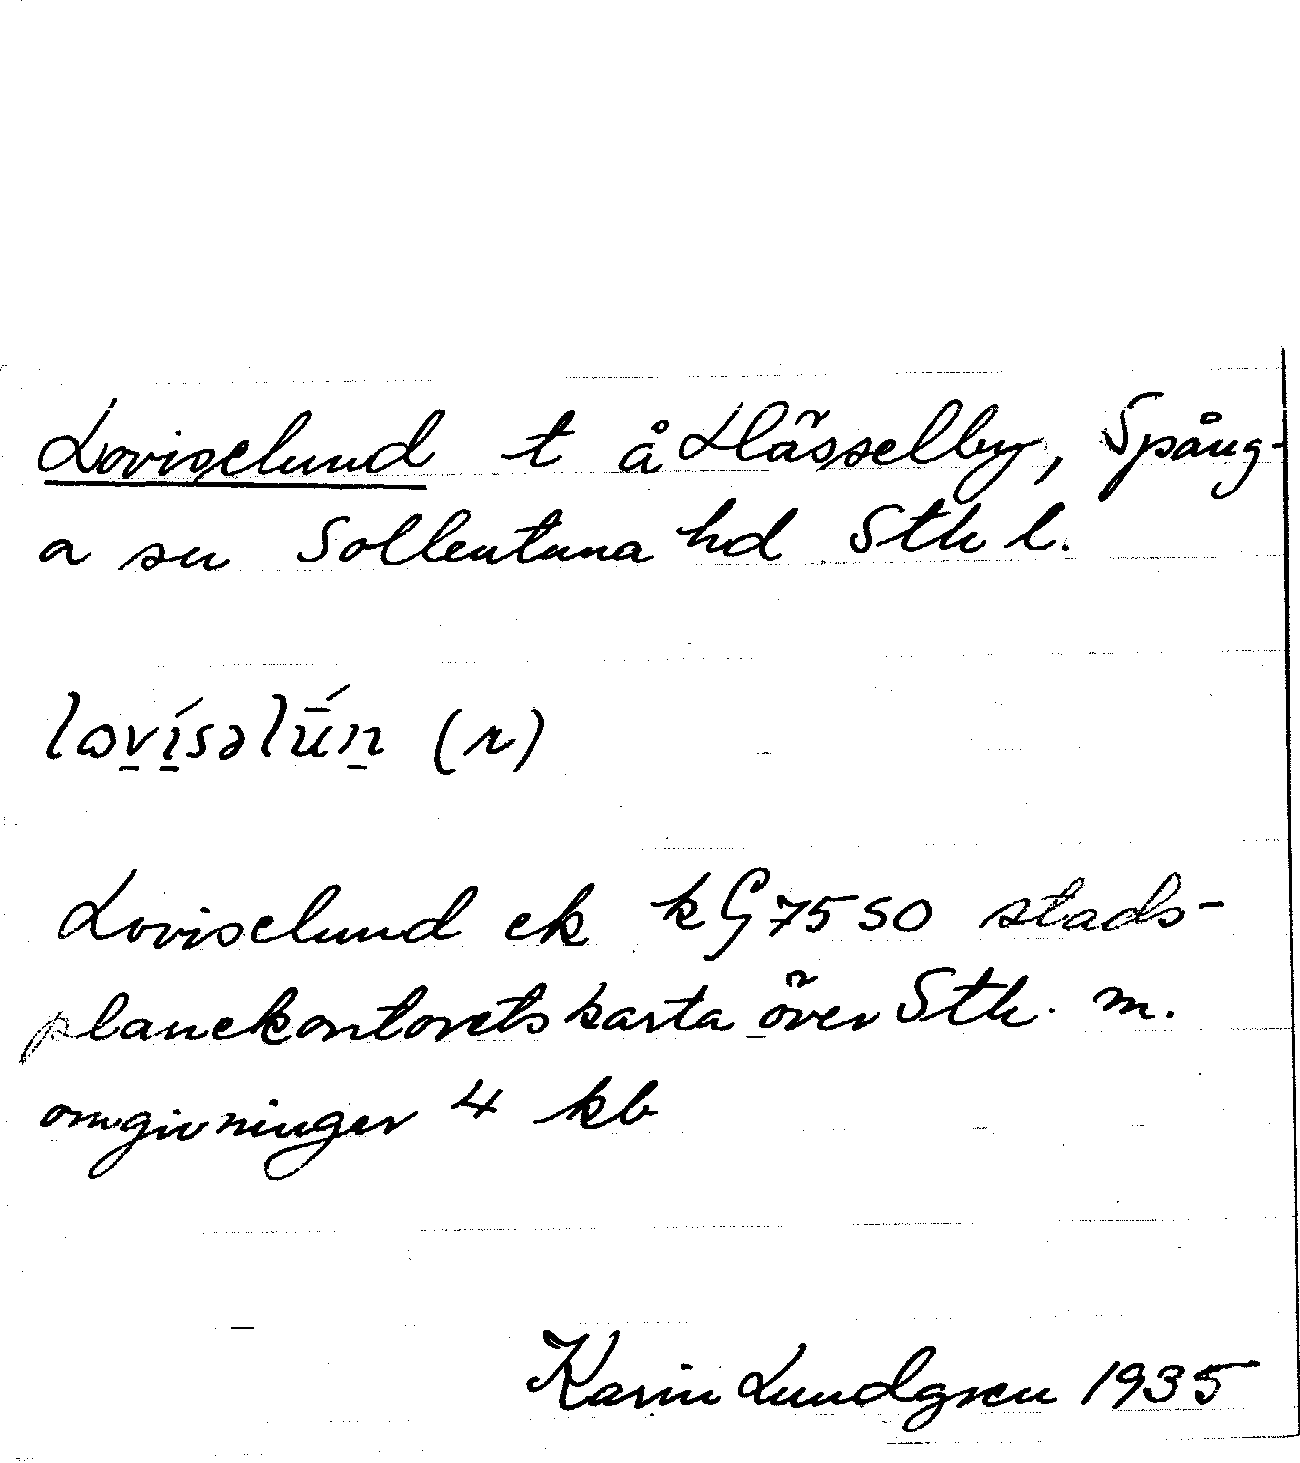 Loviselund t å Hässelby, Spång-
a sn Sollentuna hd Sthl.
lɷvísəlū́n (r)
Loviselund ek kG7550 stads-
planekontorets karta över Sth. m.
omgivningar 4 kb
Karin Lundgren 1935